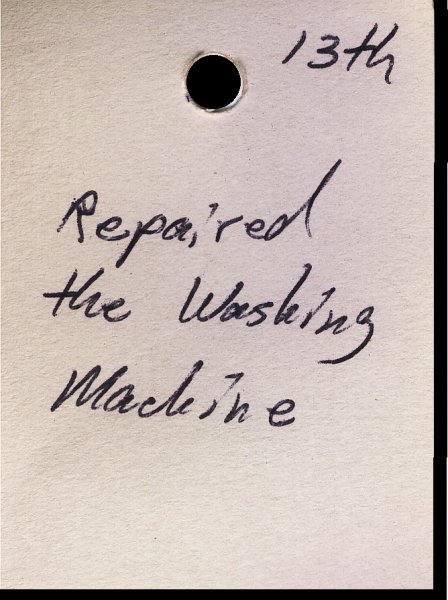 13th
Repaired
the Washing
Machine